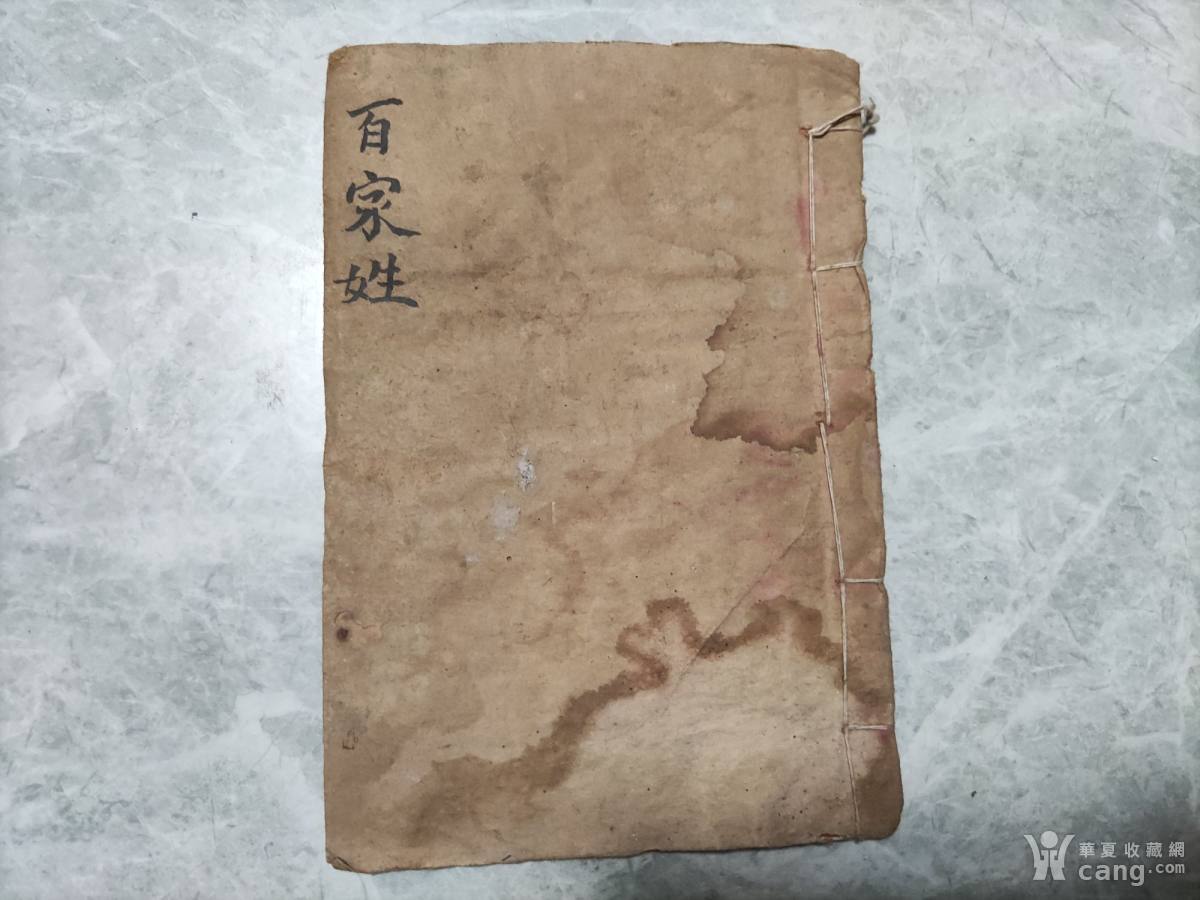 百家姓
華夏收藏網
cang.com